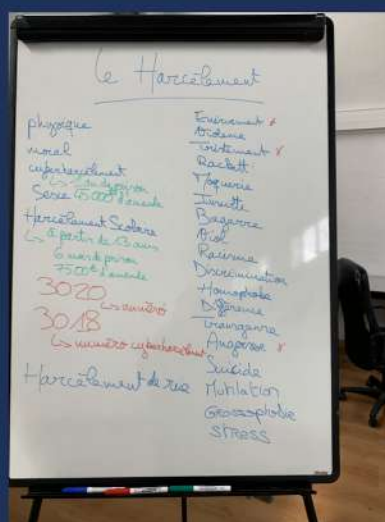 le Harcèlement
physique
moral
cyberharcèlement
Sexe
Harcèlement Scolaire
↳ à partir de 13 ans
6 mois de prison
7500€ d'amende
3020
↳ numéro
3018
↳ numéro cyberharcèlement
Harcèlement de rue
Violence
Rackett
Moquerie
Insulte
Bagarre
Viol
Racisme
Discrimination
Homophobe
Différence
Transgenre
Angoisse
Suicide
Mutilation
Grossophobie
STRESS